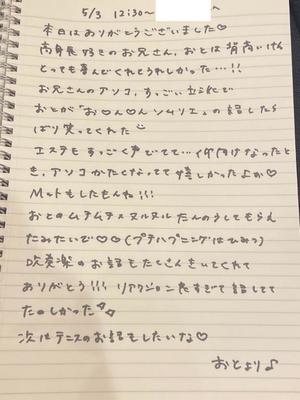 5/3 12:30〜 〜
本日はありがとうございました♡
高身長好きのお兄さん、おとは背高いけん
とっても喜んでくれてうれしかった…!!
お兄さんのアソコ、すっごい立派で
おとが「お○ん○んソムリエ」の話したら
ばり笑ってくれた
エステもすっごく声でてて…仰向けなったと
き、アソコかたくなってて嬉しかったよか♡
Mットもしたもんね!!!
おとのムチムチ×ヌルヌルたんのうしてもらえ
たみたいで♡♡(プチハプニングはひみつ)
吹奏楽のお話もたくさんきいてくれて
ありがとう!!!リアクション良すぎて話してて
たのしかった
次はテニスのお話もしたいな♡
おとより♪